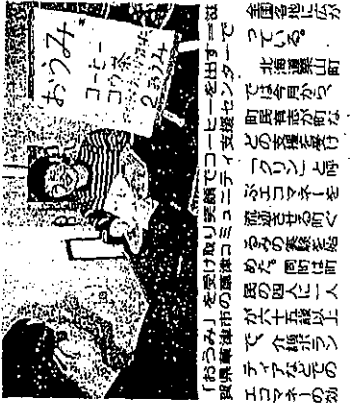 おうみ
コーヒー
コウ茶
2おうみ
「おうみ」を受け取り笑顔でコーヒーを出す＝滋
賀県草津市の草津コミュニティ支援センターで
全国各地に広が
っている。
北海道栗山町
では今月から、
町民有志が町な
どの支援を受け
「クリン」と呼
ぶエコマネーを
流通させる町ぐ
るみの実験を始
めた。同町は町
民の四人に一人
が六十五歳以上
で、介護ボラン
ティアなどでの
エコマネーの効